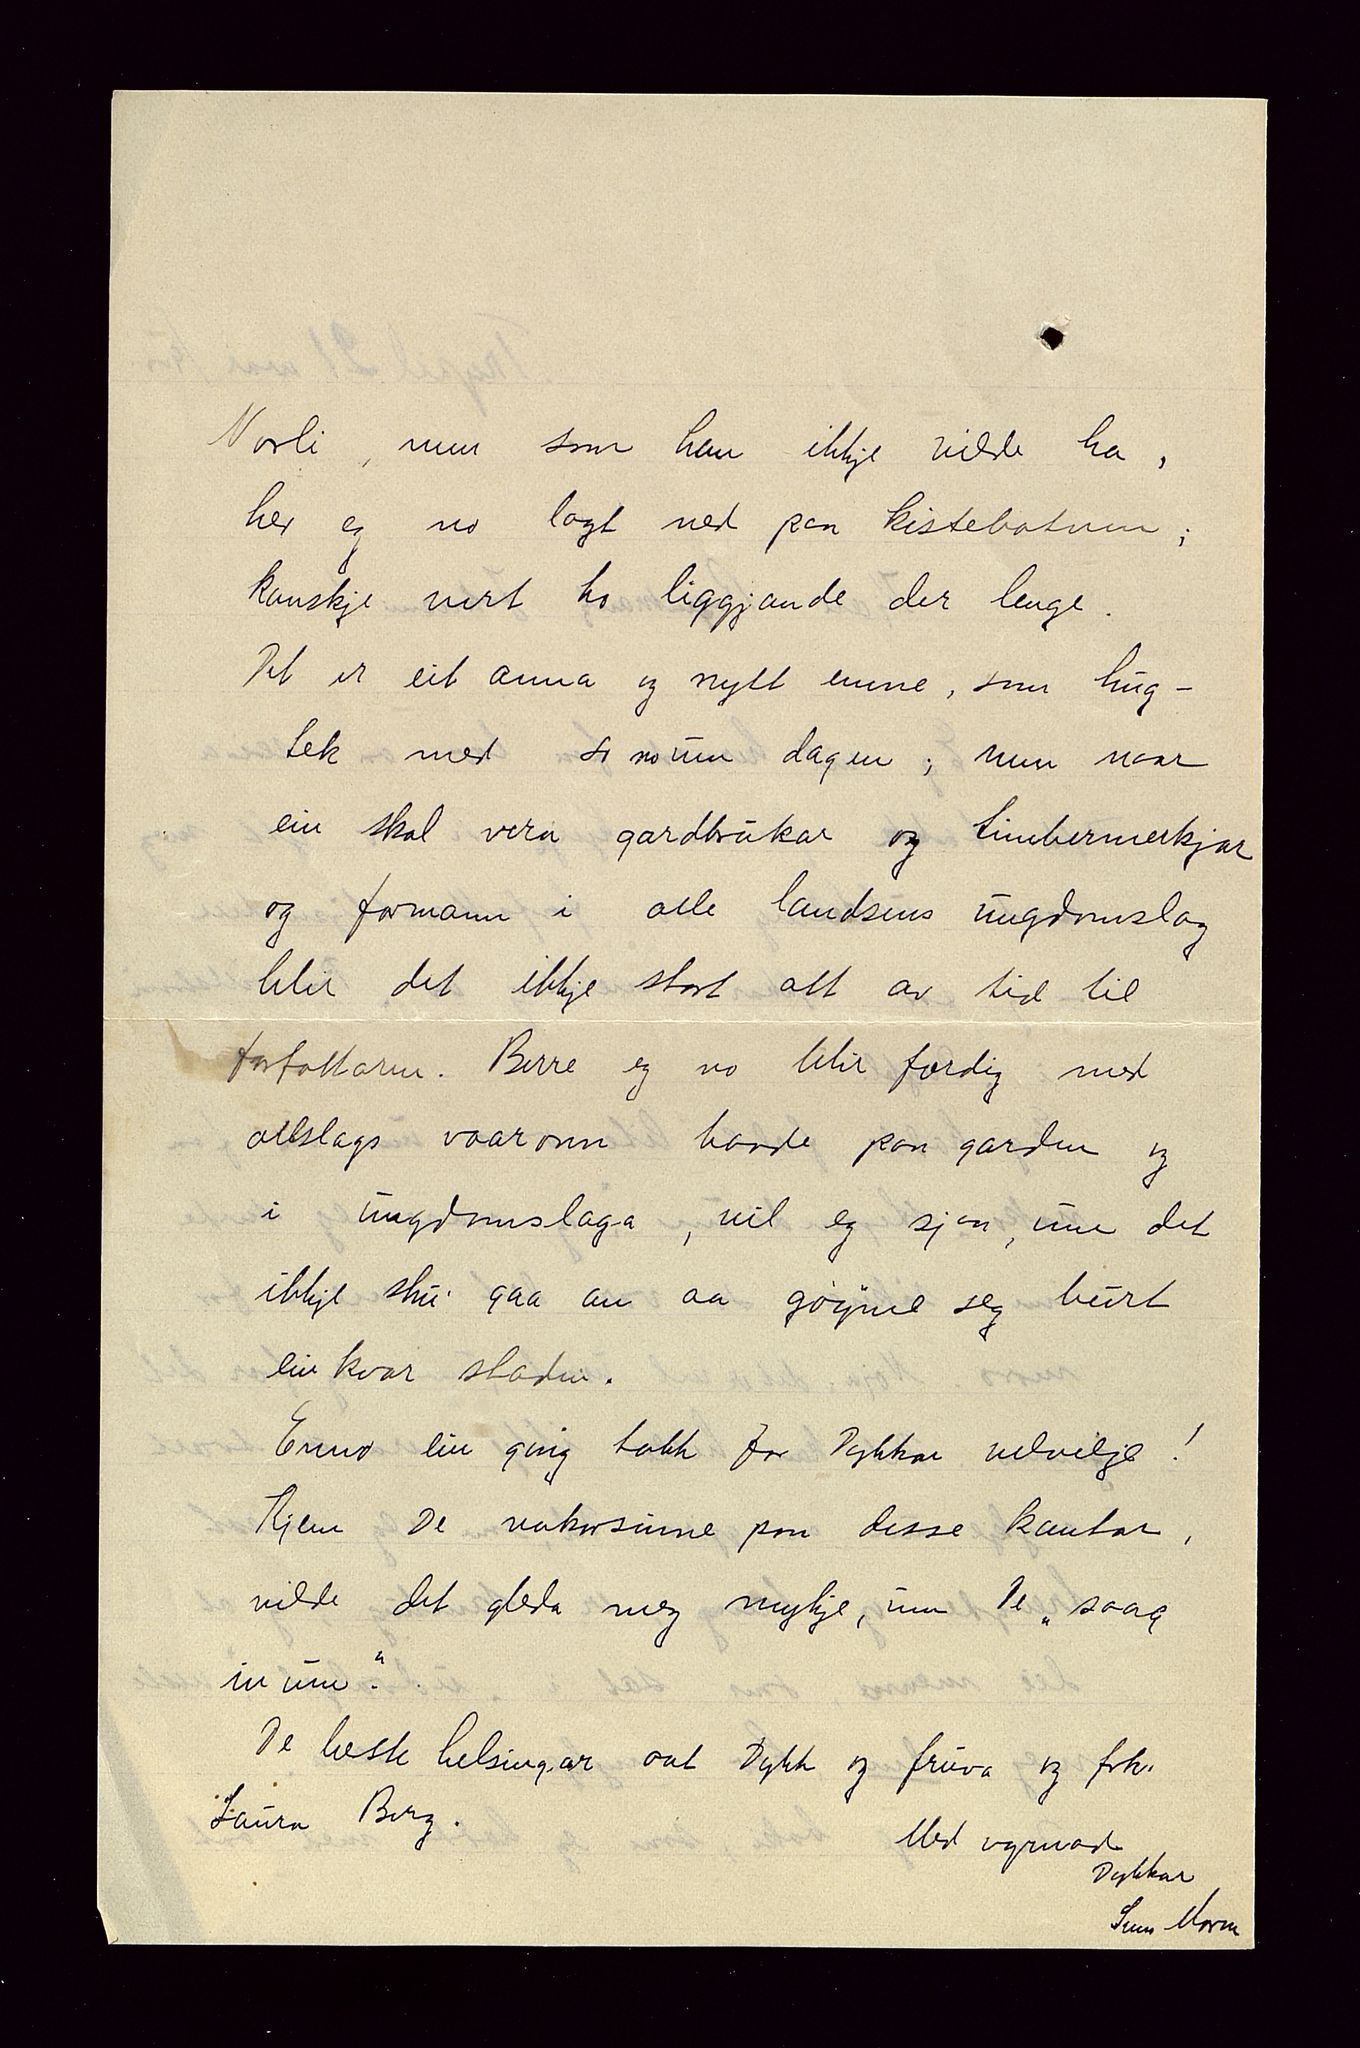 Norli, men som han ikkje vilde ha,
her eg no lagt ned paa kistebotnen;
kanskje vert ho liggjande der lenge.
Det er eit anna og nytt emne, som hug-
tek med so no um dagen; men naar
ein skal vera gardbrukar og timbermerkjar
og formann i alle landsens ungdomslag
blir det ikkje stort att av tid til
forfattarn. Berre eg no blir færdig med
allslags vaaronn baade paa garden og
i ungdomslaga, vil eg sjaa, um det
ikkje sku' gaa an aa gøyme seg burt
ein kvar staden.
Enno ein gong takk for Dykkar velvilje!
Kjem De nokorsinne paa desse kantar,
vilde det gleda meg mykje, um De „saag
in um“.
De beste helsingar aat Dykk og fruva og frk.
Laura Berg.
Med vyrdnad
Dykkar
Sven Moren